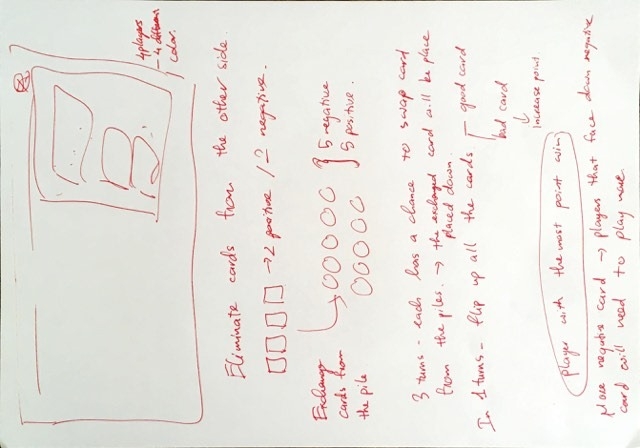 4 players
→ 4 different
color.
Eliminate cards from the other side.
→ 2 positive / 2 negative.
Exchange
cards from
the pile
5 negative
5 positive.
3 turns - each has a chance to swap card
from the piles. → the exchanged card will be place
placed down.
In 1 turns - flip up all the cards
good card
bad card
↓
increase point
player with the most point win
place negative card → players that face down negative
card will need to play more.